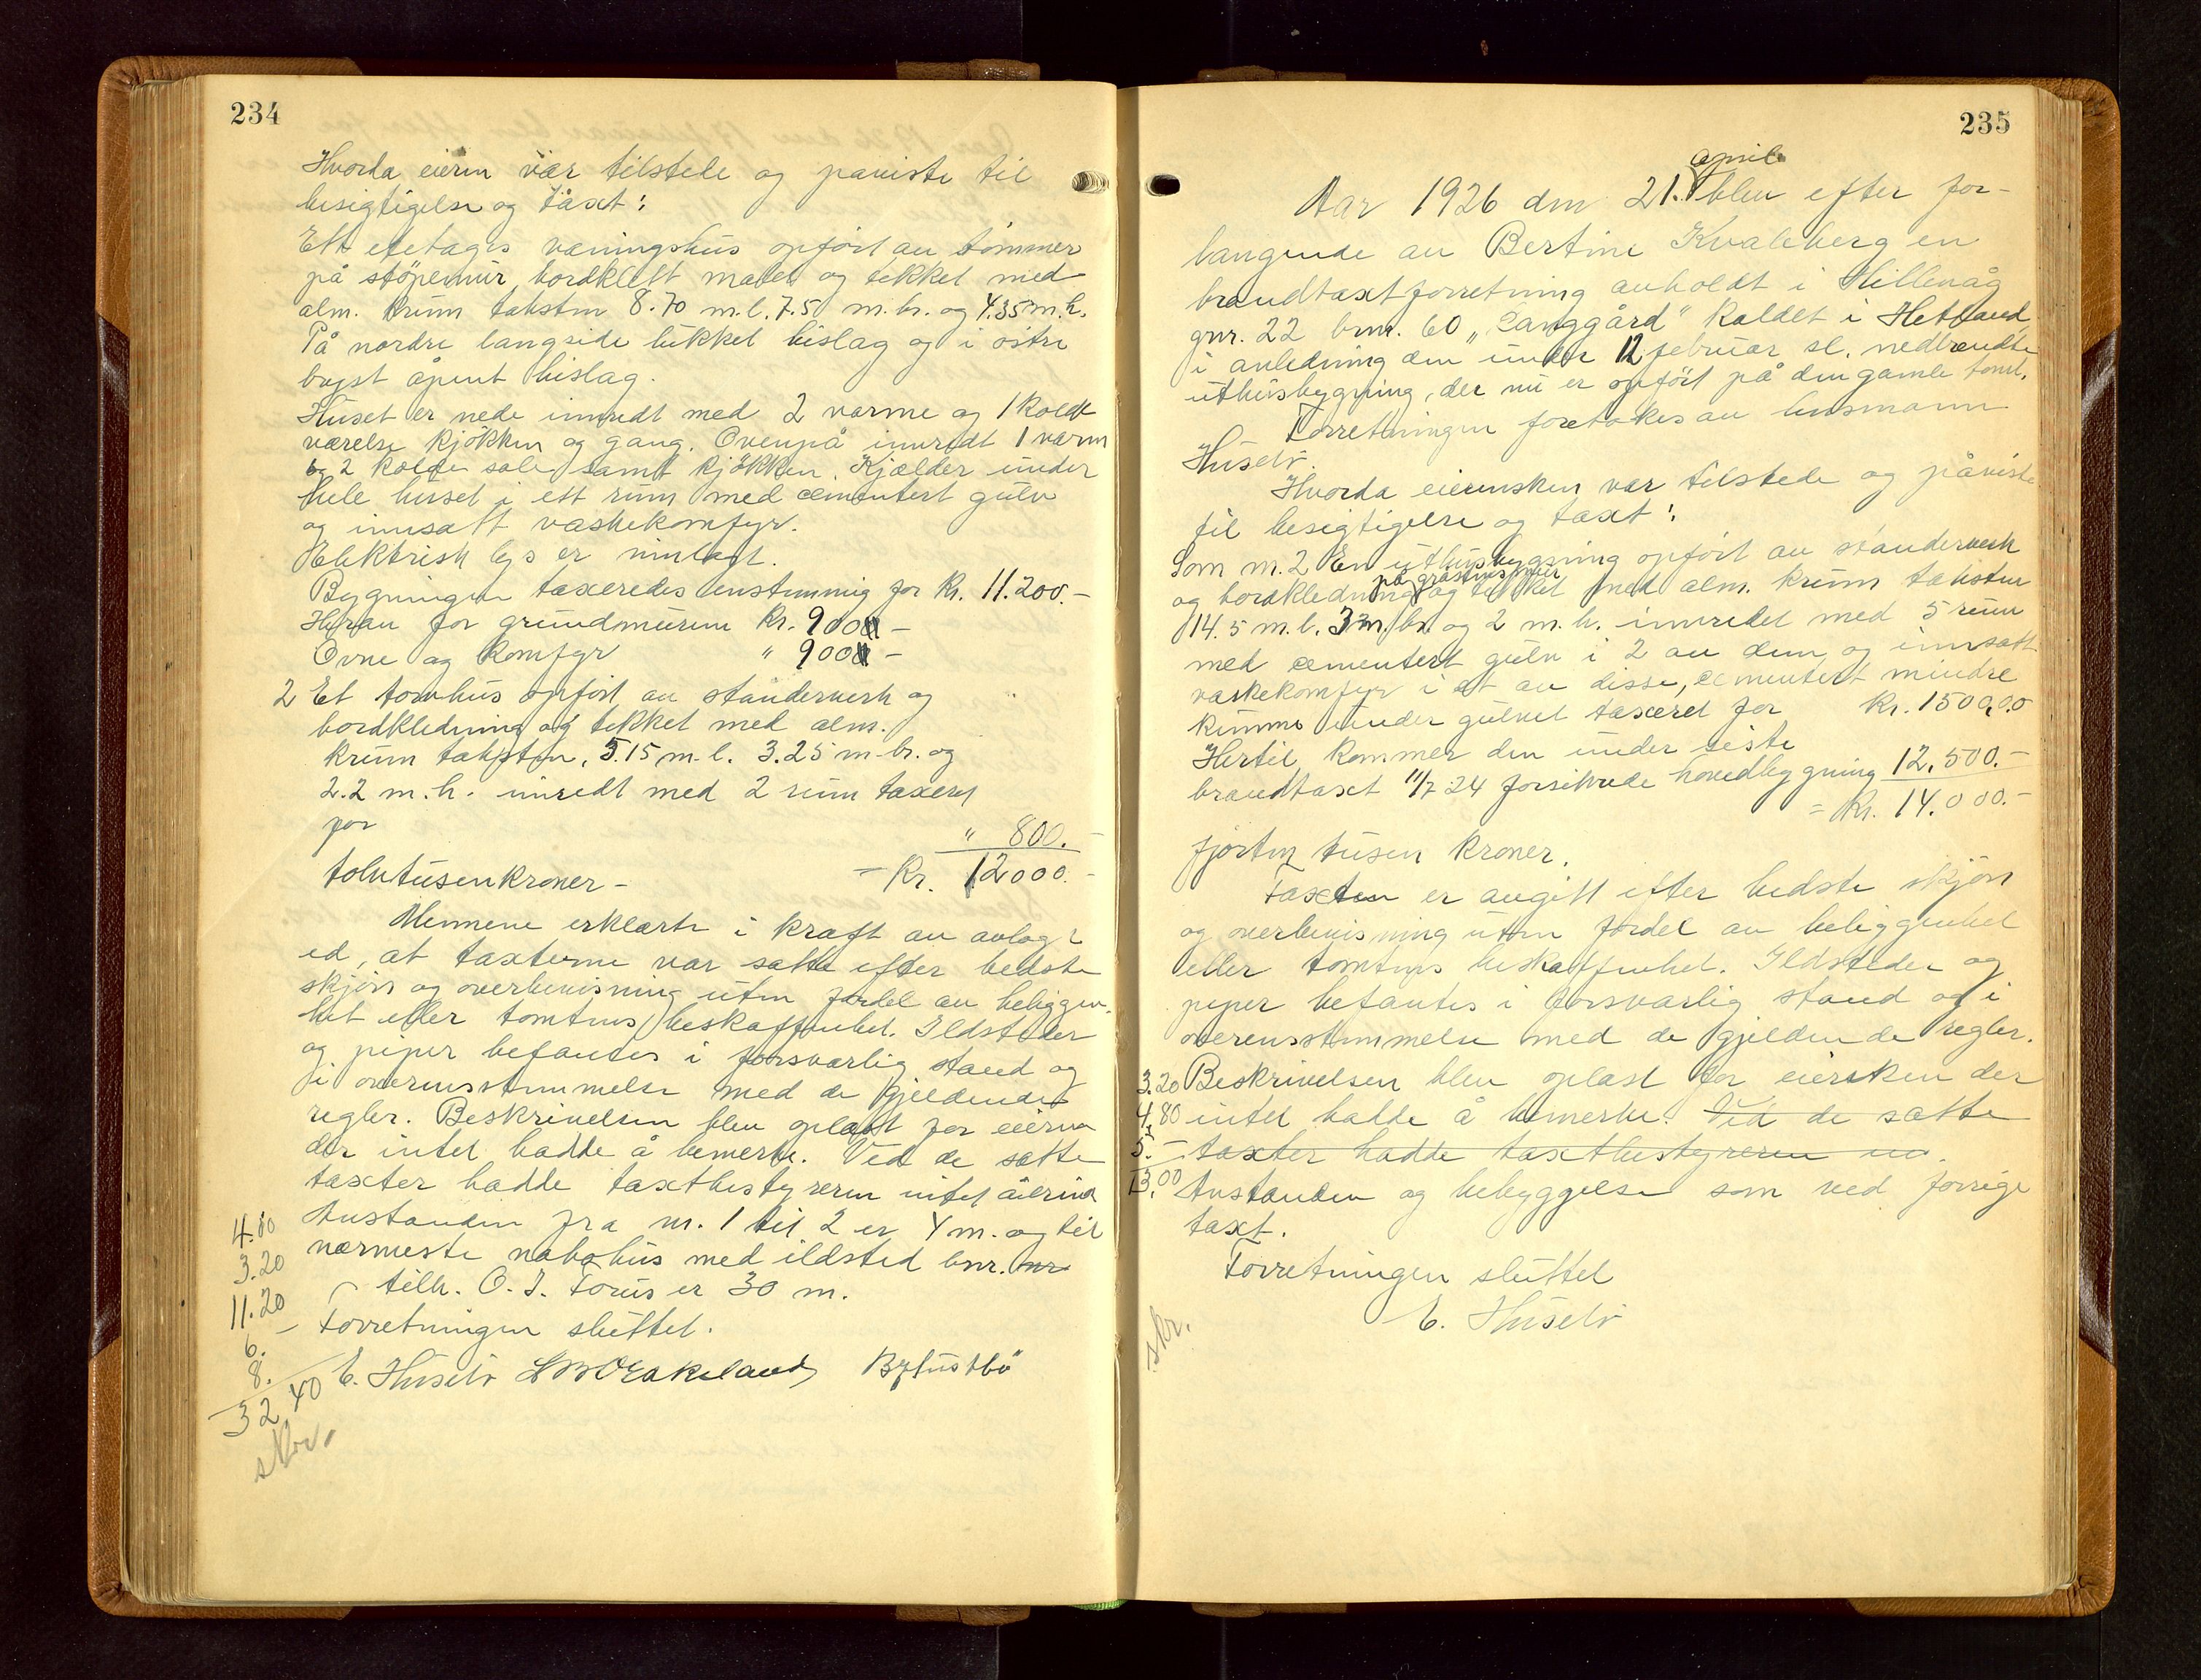 234
Hvorda eieren var tilstede og paviste til
besigtigelse og taxt:
Ett etetages vaningshus opført av tømmer
på støpemur, bordklett malet og tekket med
alm. krum taksten 8.70 m.l. 7.50 m.br. og 4.35 m.h.
På nordre langside lukket bislag og i østre
bygst åpent bislag.
Huset er nede innredt med 2 varme og 1 koldt
værelse kjøkken og gang. Ovenpå innredt 1 varm
og 2 kolde sale samt kjøkken. Kjælder under
hele huset i ett rum med cementert gulv
og innsatt vaskekomfyr.
Elektrisk lys er innlagt.
Bygningen taxeredes enstemmig for Kr. 11.200.-
Herav for grundmuren Kr. 900 -
Ovne og komfyr " 900 -
2 Et tomhus opført av ständerverk og
bordkledning og tekket med alm.
krum taksten, 5.15 m.l. 3.25 m.br. og
2.2 m.h. innredt med 2 rum taxert
for " 800.-
tolvtusenkroner - = Kr. 12000.-
Mennene erklærte i kraft av avlagt
ed, at taxterne var satte efter bedste
skjøn og overbevisning uten fordel av beliggen-
het eller tomtens beskaffenhet. Ildsteder
og piper befantes i forsvarlig stand og
i overensstemmelse med de gjeldende
regler. Beskrivelsen blev oplæst for eieren
der intet hadde å bemerke. Ved de satte
taxter hadde taxtbestyreren intet at erindr
Avstanden fra nr. 1 til 2 er 4 m. og til
nærmeste nabohus med ildsted bnr.
tilh. O. J. Forus er 30 m.
Forretningen sluttet.
E. Huselv
4.80
3.20
11.20
6. -
8.
32 40
skr.
235
april
Aar 1926 den 21. blev efter for-
langende av Bertine Kvaleberg en
brandtaxtforretning avholdt i Hillevåg
gnr. 22 bnr. 60 "Langgård" kaldet i Hetland
i anledning den under 12 februar sl. nedbrendte
uthusbygning, der nu er opført på den gamle tomt.
Forretningen foretokes av lensmann
Huselv.
Hvorda eierinsken var tilstede og påviste
til besigtigelse og taxt:
Som nr. 2 En uthusbygning opført av stænderverk
på gråstensmur
og bordkledning og tekket med alm. krum taksten
14.5 m.l. 3 m. br. og 2 m.h. innredet med 5 rum
med cementert gulv i 2 av dem og innsatt
vaskekomfyr i et av disse, cementert mindre
kumme under gulvet taxeret for Kr. 1500,00
Hertil kommer den under siste
brandtaxt 11/7 24 forsikrede hovedbygning 12.500.-
= Kr. 14.000.-
fjorten tusen kroner.
Taxten er avgitt efter bedste skjøn
og overbevisning uten fordel av beliggenhet
eller tomtens beskaffenhet. Ildsteder og
piper befantes i forsvarlig stand og i
overensstemmelse med de gjeldende regler.
3.20 Beskrivelsen blev oplæst for eiersken der
4.80 intet hadde å bemerke. Ved de satte
5. - taxter hadde taxtbestyreren in
13.00 Avstanden og bebyggelse som ved forrige
taxt.
Forretningen sluttet
E. Huselv
skr.